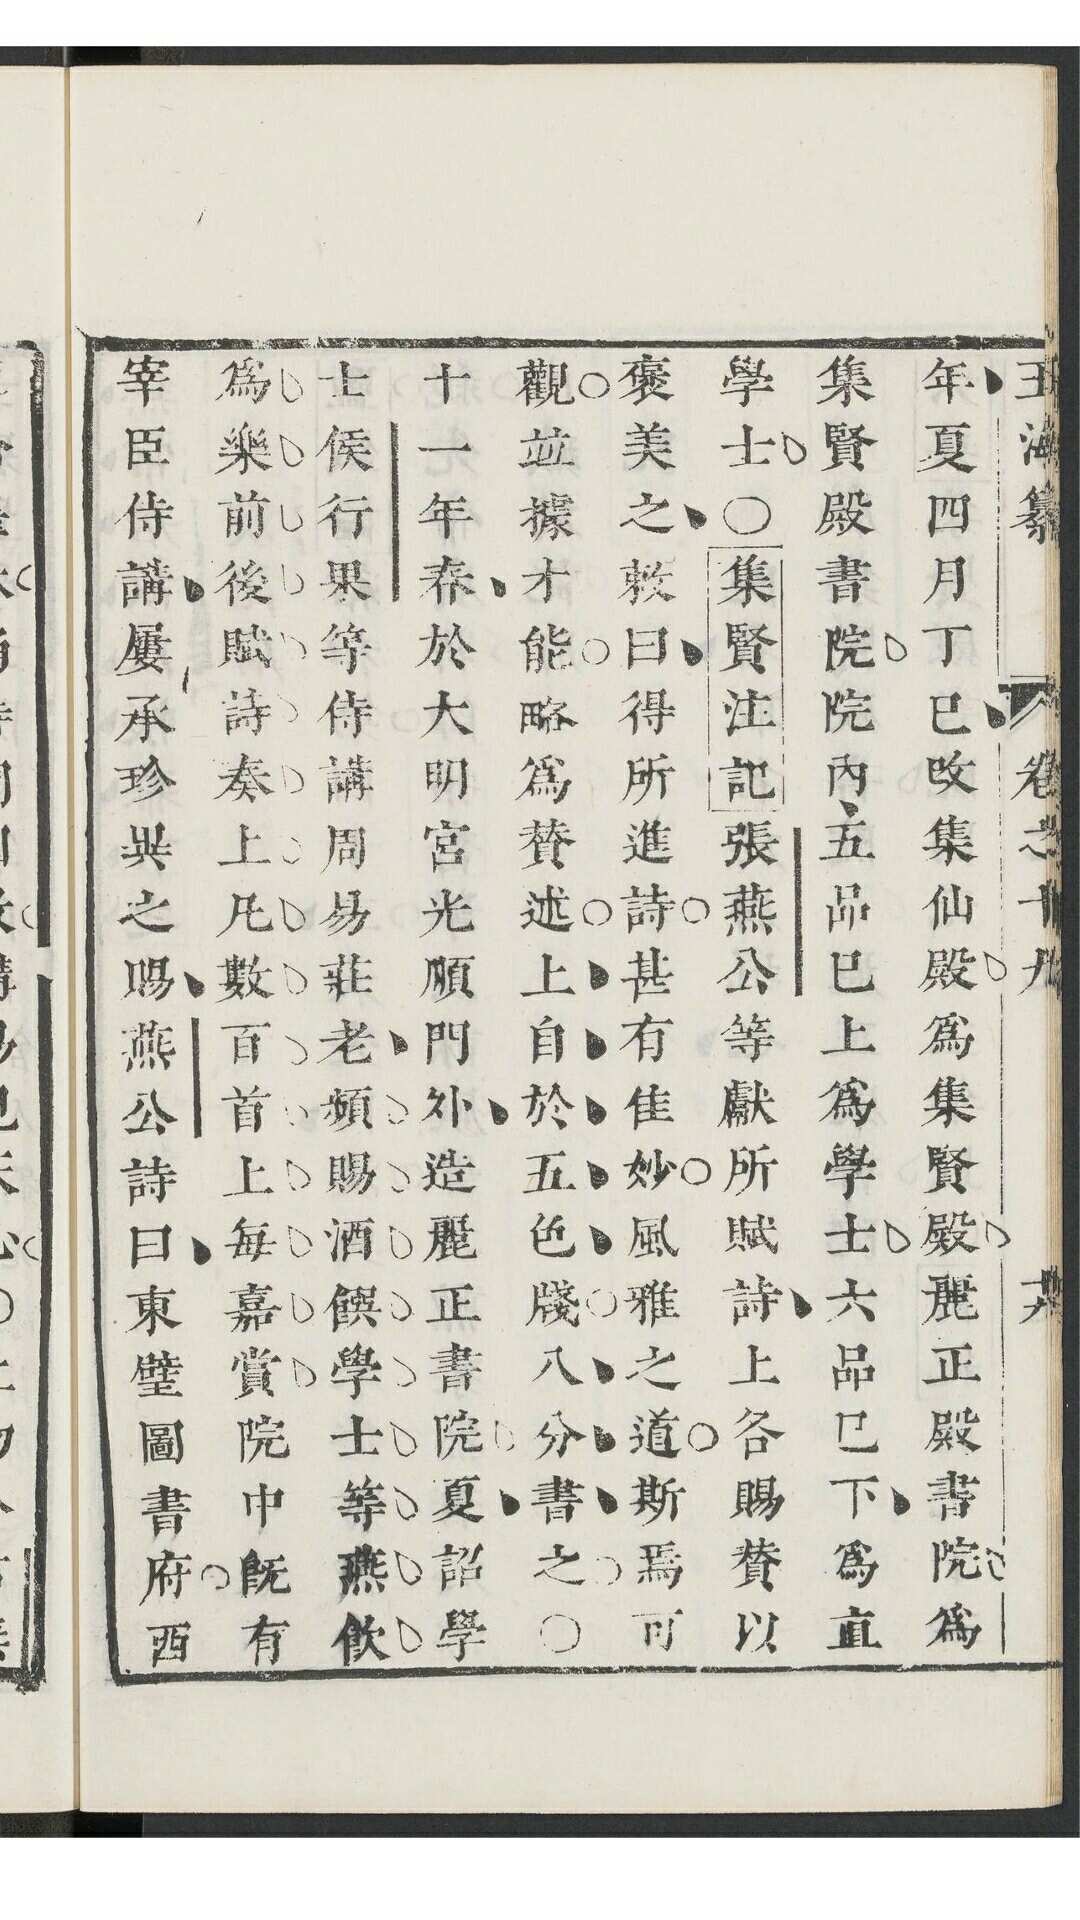 玉海纂 卷之十九 十六
年夏四月丁巳改集仙殿爲集賢殿麗正殿書院爲
集賢殿書院院內五品已上爲學士六品已下爲直
學士○集賢注記張燕公等獻所賦詩上各賜贊以
褒美之敕曰得所進詩甚有佳妙風雅之道斯焉可
觀並據才能略爲贊述上自於五色牋八分書之○
十一年春於大明宮光順門外造麗正書院夏詔學
士侯行果等侍講周易莊老頻賜酒饌學士等燕飲
爲樂前後賦詩奏上凡數百首上每嘉賞院中旣有
宰臣侍講屢承珍異之賜燕公詩曰東壁圖書府西